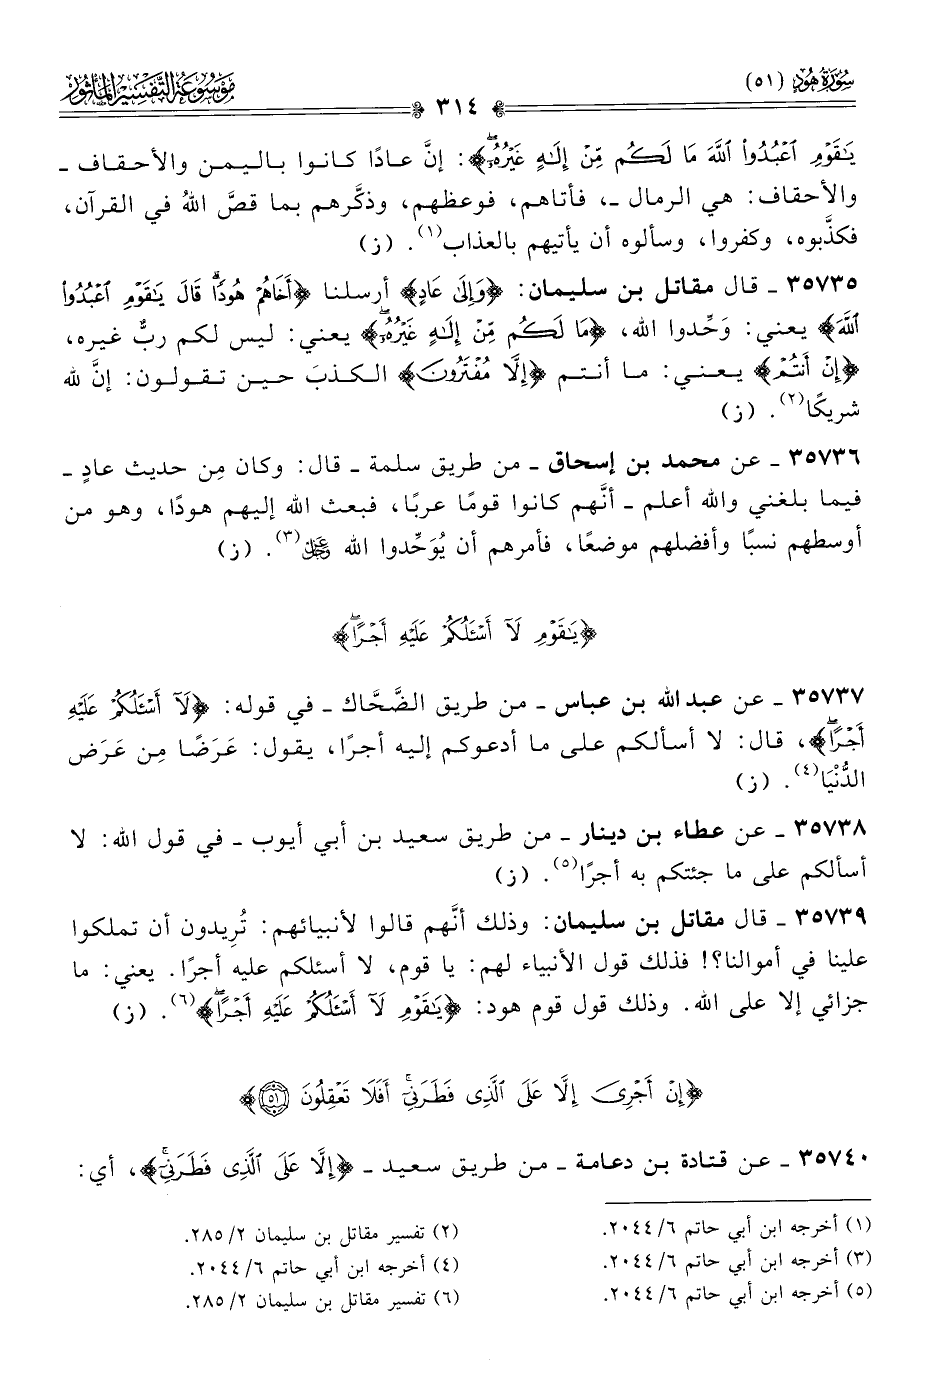 سُورَةُ هُودٍ (٥١)
٣١٤
مَوْسُوعَة التَّفْسِير المَأْثُور
يَٰقَوْمِ ٱعْبُدُوا۟ ٱللَّهَ مَا لَكُم مِّنْ إِلَٰهٍ غَيْرُهُۥٓ﴾: إنَّ عادًا كانوا باليمن والأحقاف ـ
والأحقاف: هي الرمال ـ، فأتاهم، فوعظهم، وذكَّرهم بما قصَّ اللهُ في القرآن،
فكذَّبوه، وكفروا، وسألوه أن يأتيهم بالعذاب(١). (ز)
٣٥٧٣٥ ـ قال مقاتل بن سليمان: ﴿وَإِلَىٰ عَادٍ﴾ أرسلنا ﴿أَخَاهُمْ هُودًاۚ قَالَ يَٰقَوْمِ ٱعْبُدُوا۟
ٱللَّهَ﴾ يعني: وَحِّدوا الله، ﴿مَا لَكُم مِّنْ إِلَٰهٍ غَيْرُهُۥٓ﴾ يعني: ليس لكم ربٌّ غيره،
﴿إِنْ أَنتُمْ﴾ يعني: ما أنتم ﴿إِلَّا مُفْتَرُونَ﴾ الكذبَ حين تقولون: إنَّ لله
شريكًا(٢). (ز)
٣٥٧٣٦ ـ عن محمد بن إسحاق ـ من طريق سلمة ـ قال: وكان مِن حديث عادٍ ـ
فيما بلغني والله أعلم ـ أنَّهم كانوا قومًا عربًا، فبعث الله إليهم هودًا، وهو من
أوسطهم نسبًا وأفضلهم موضعًا، فأمرهم أن يُوَحِّدوا الله ﷿(٣). (ز)
﴿يَٰقَوْمِ لَآ أَسْـَٔلُكُمْ عَلَيْهِ أَجْرًاۖ﴾
٣٥٧٣٧ ـ عن عبد الله بن عباس ـ من طريق الضَّحَّاك ـ في قوله: ﴿لَآ أَسْـَٔلُكُمْ عَلَيْهِ
أَجْرًاۖ﴾، قال: لا أسألكم على ما أدعوكم إليه أجرًا، يقول: عَرَضًا مِن عَرَض
الدُّنْيَا(٤). (ز)
٣٥٧٣٨ ـ عن عطاء بن دينار ـ من طريق سعيد بن أبي أيوب ـ في قول الله: لا
أسألكم على ما جئتكم به أجرًا(٥). (ز)
٣٥٧٣٩ ـ قال مقاتل بن سليمان: وذلك أنَّهم قالوا لأنبيائهم: تُرِيدون أن تملكوا
علينا في أموالنا؟! فذلك قول الأنبياء لهم: يا قوم، لا أسئلكم عليه أجرًا. يعني: ما
جزائي إلا على الله. وذلك قول قوم هود: ﴿يَٰقَوْمِ لَآ أَسْـَٔلُكُمْ عَلَيْهِ أَجْرًاۖ﴾(٦). (ز)
﴿إِنْ أَجْرِىَ إِلَّا عَلَى ٱلَّذِى فَطَرَنِىٓۚ أَفَلَا تَعْقِلُونَ ٥١﴾
٣٥٧٤٠ ـ عن قتادة بن دعامة ـ من طريق سعيد ـ ﴿إِلَّا عَلَى ٱلَّذِى فَطَرَنِىٓۚ﴾، أي:
(١) أخرجه ابن أبي حاتم ٦/ ٢٠٤٤.
(٢) تفسير مقاتل بن سليمان ٢/ ٢٨٥.
(٣) أخرجه ابن أبي حاتم ٦/ ٢٠٤٤.
(٤) أخرجه ابن أبي حاتم ٦/ ٢٠٤٤.
(٥) أخرجه ابن أبي حاتم ٦/ ٢٠٤٤.
(٦) تفسير مقاتل بن سليمان ٢/ ٢٨٥.